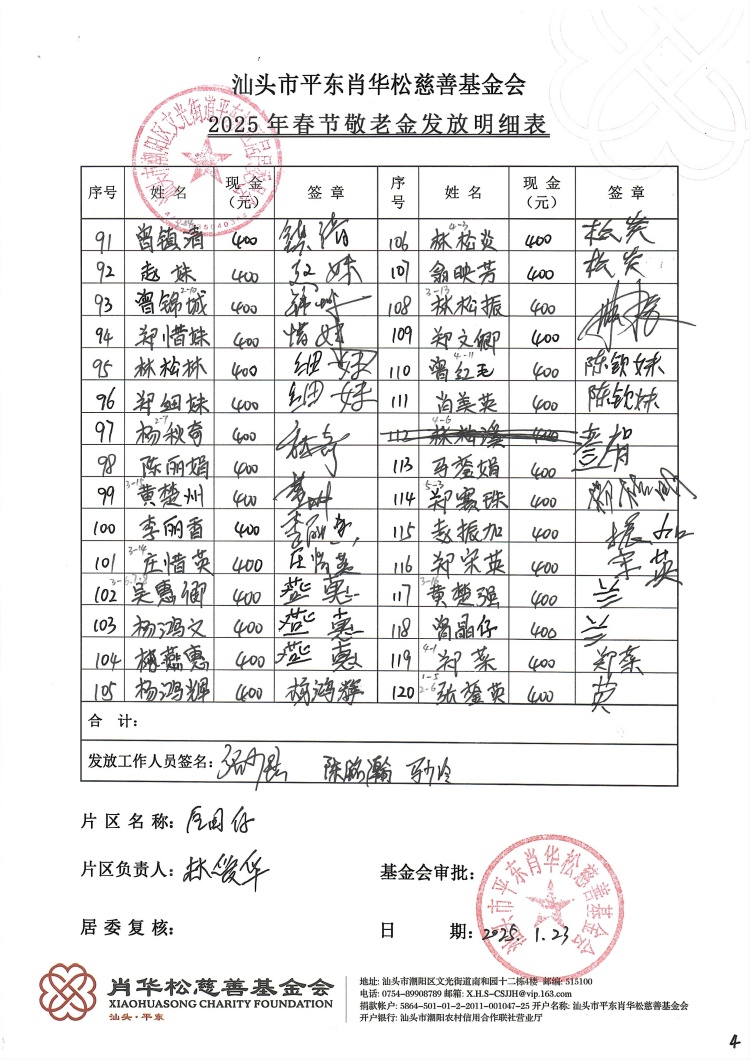 汕头市平东肖华松慈善基金会
2025 年春节敬老金发放明细表
序号 姓 名 现 金（元） 签 章 序号 姓 名 现 金（元） 签 章
91 曾镇清 400 镇清 106 4-3 林松炎 400 松炎
92 赵妹 400 妹 107 翁映芳 400 松炎
93 曾锦城 2-10 400 108 3-13 林松振 400
94 郑惜妹 400 惜妹 109 郑文卿 400
95 林松林 400 细妹 110 4-11 曾红毛 400 陈钦妹
96 郑细妹 400 细妹 111 肖美英 400 陈钦妹
97 2-7 杨秋奇 400 112 4-6 400
98 陈丽娟 400 113 马銮娟 400
99 3-15 黄楚州 400 114 5-3 郑惠珠 400
100 李丽香 400 115 赵振加 400 振加
101 3-14 庄惜英 400 庄惜英 116 郑宋英 400 宋英
102 3-6.7.8 吴惠卿 400 燕惠 117 3-16 黄楚强 400 兰
103 杨鸿文 400 燕惠 118 曾晶仔 400 兰
104 林燕惠 400 燕惠 119 4-1 郑菜 400 郑菜
105 杨鸿辉 400 杨鸿辉 120 1-5 2-6 张銮英 400 英
合 计：
发放工作人员签名：
片 区 名 称：
片区负责人：林俊华
基金会审批：
居 委 复 核：
日 期：2025. 1.23
汕头市平东肖华松慈善基金会
肖华松慈善基金会
XIAOHUASONG CHARITY FOUNDATION
汕头·平东
地址: 汕头市潮阳区文光街道南和园十二栋4楼 邮编: 515100
电话: 0754-89908789 邮箱: X.H.S-CSJJH@vip.163.com
捐款帐户: 5864-501-01-2-2011-001047-25 开户名称: 汕头市平东肖华松慈善基金会
开户银行: 汕头市潮阳农村信用合作联社营业厅
4